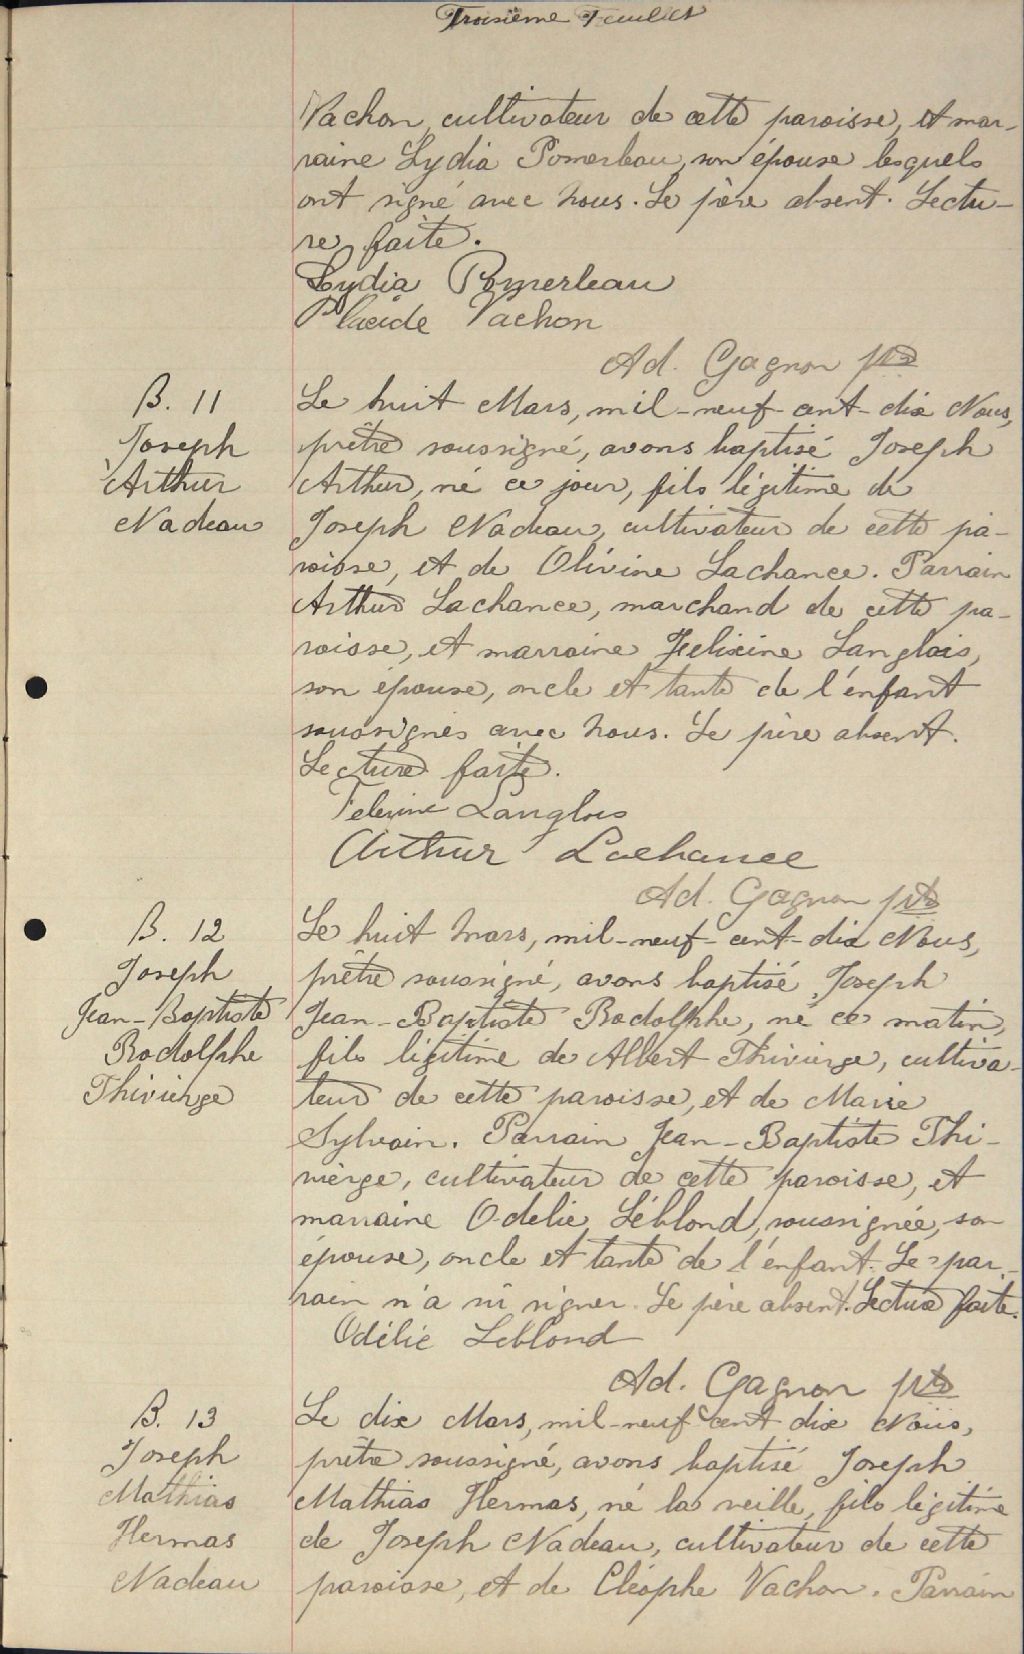 Troisième Feuillet
Vachon, cultivateur de cette paroisse, et mar-
raine Lydia Pomerleau, son épouse lesquels
ont signé avec nous. Le père absent. Lectu-
re faite.
Lydia Pomerleau
Placide Vachon
Ad. Gagnon ptre
B. 11
Joseph
Arthur
Nadeau
Le huit Mars, mil-neuf-cent-dix Nous,
prêtre soussigné, avons baptisé Joseph
Arthur, né ce jour, fils légitime de
Joseph Nadeau, cultivateur de cette pa-
roisse, et de Olivine Lachance. Parrain
Arthur Lachance, marchand de cette pa-
roisse, et marraine Felixine Langlois,
son épouse, oncle et tante de l'enfant
soussignés avec nous. Le père absent.
Lecture faite.
Felixine Langlois
Arthur Lachance
Ad. Gagnon ptre
B. 12
Joseph
Jean-Baptiste
Rodolphe
Thivierge
Le huit mars, mil-neuf-cent-dix Nous,
prêtre soussigné, avons baptisé Joseph
Jean-Baptiste Rodolphe, né ce matin,
fils légitime de Albert Thivierge, cultiva-
teur de cette paroisse, et de Marie
Sylvain. Parrain Jean-Baptiste Thi-
vierge, cultivateur de cette paroisse, et
marraine Odelie Léblond, soussignée, son
épouse, oncle et tante de l'enfant. Le par-
rain n'a su signer. Le père absent. Lecture faite.
Odélie Leblond
Ad. Gagnon ptre
B. 13
Joseph
Mathias
Hermas
Nadeau
Le dix Mars, mil-neuf cent dix Nous,
prêtre soussigné, avons baptisé Joseph
Mathias Hermas, né la veille, fils légitime
de Joseph Nadeau, cultivateur de cette
paroisse, et de Cléophe Vachon. Parrain